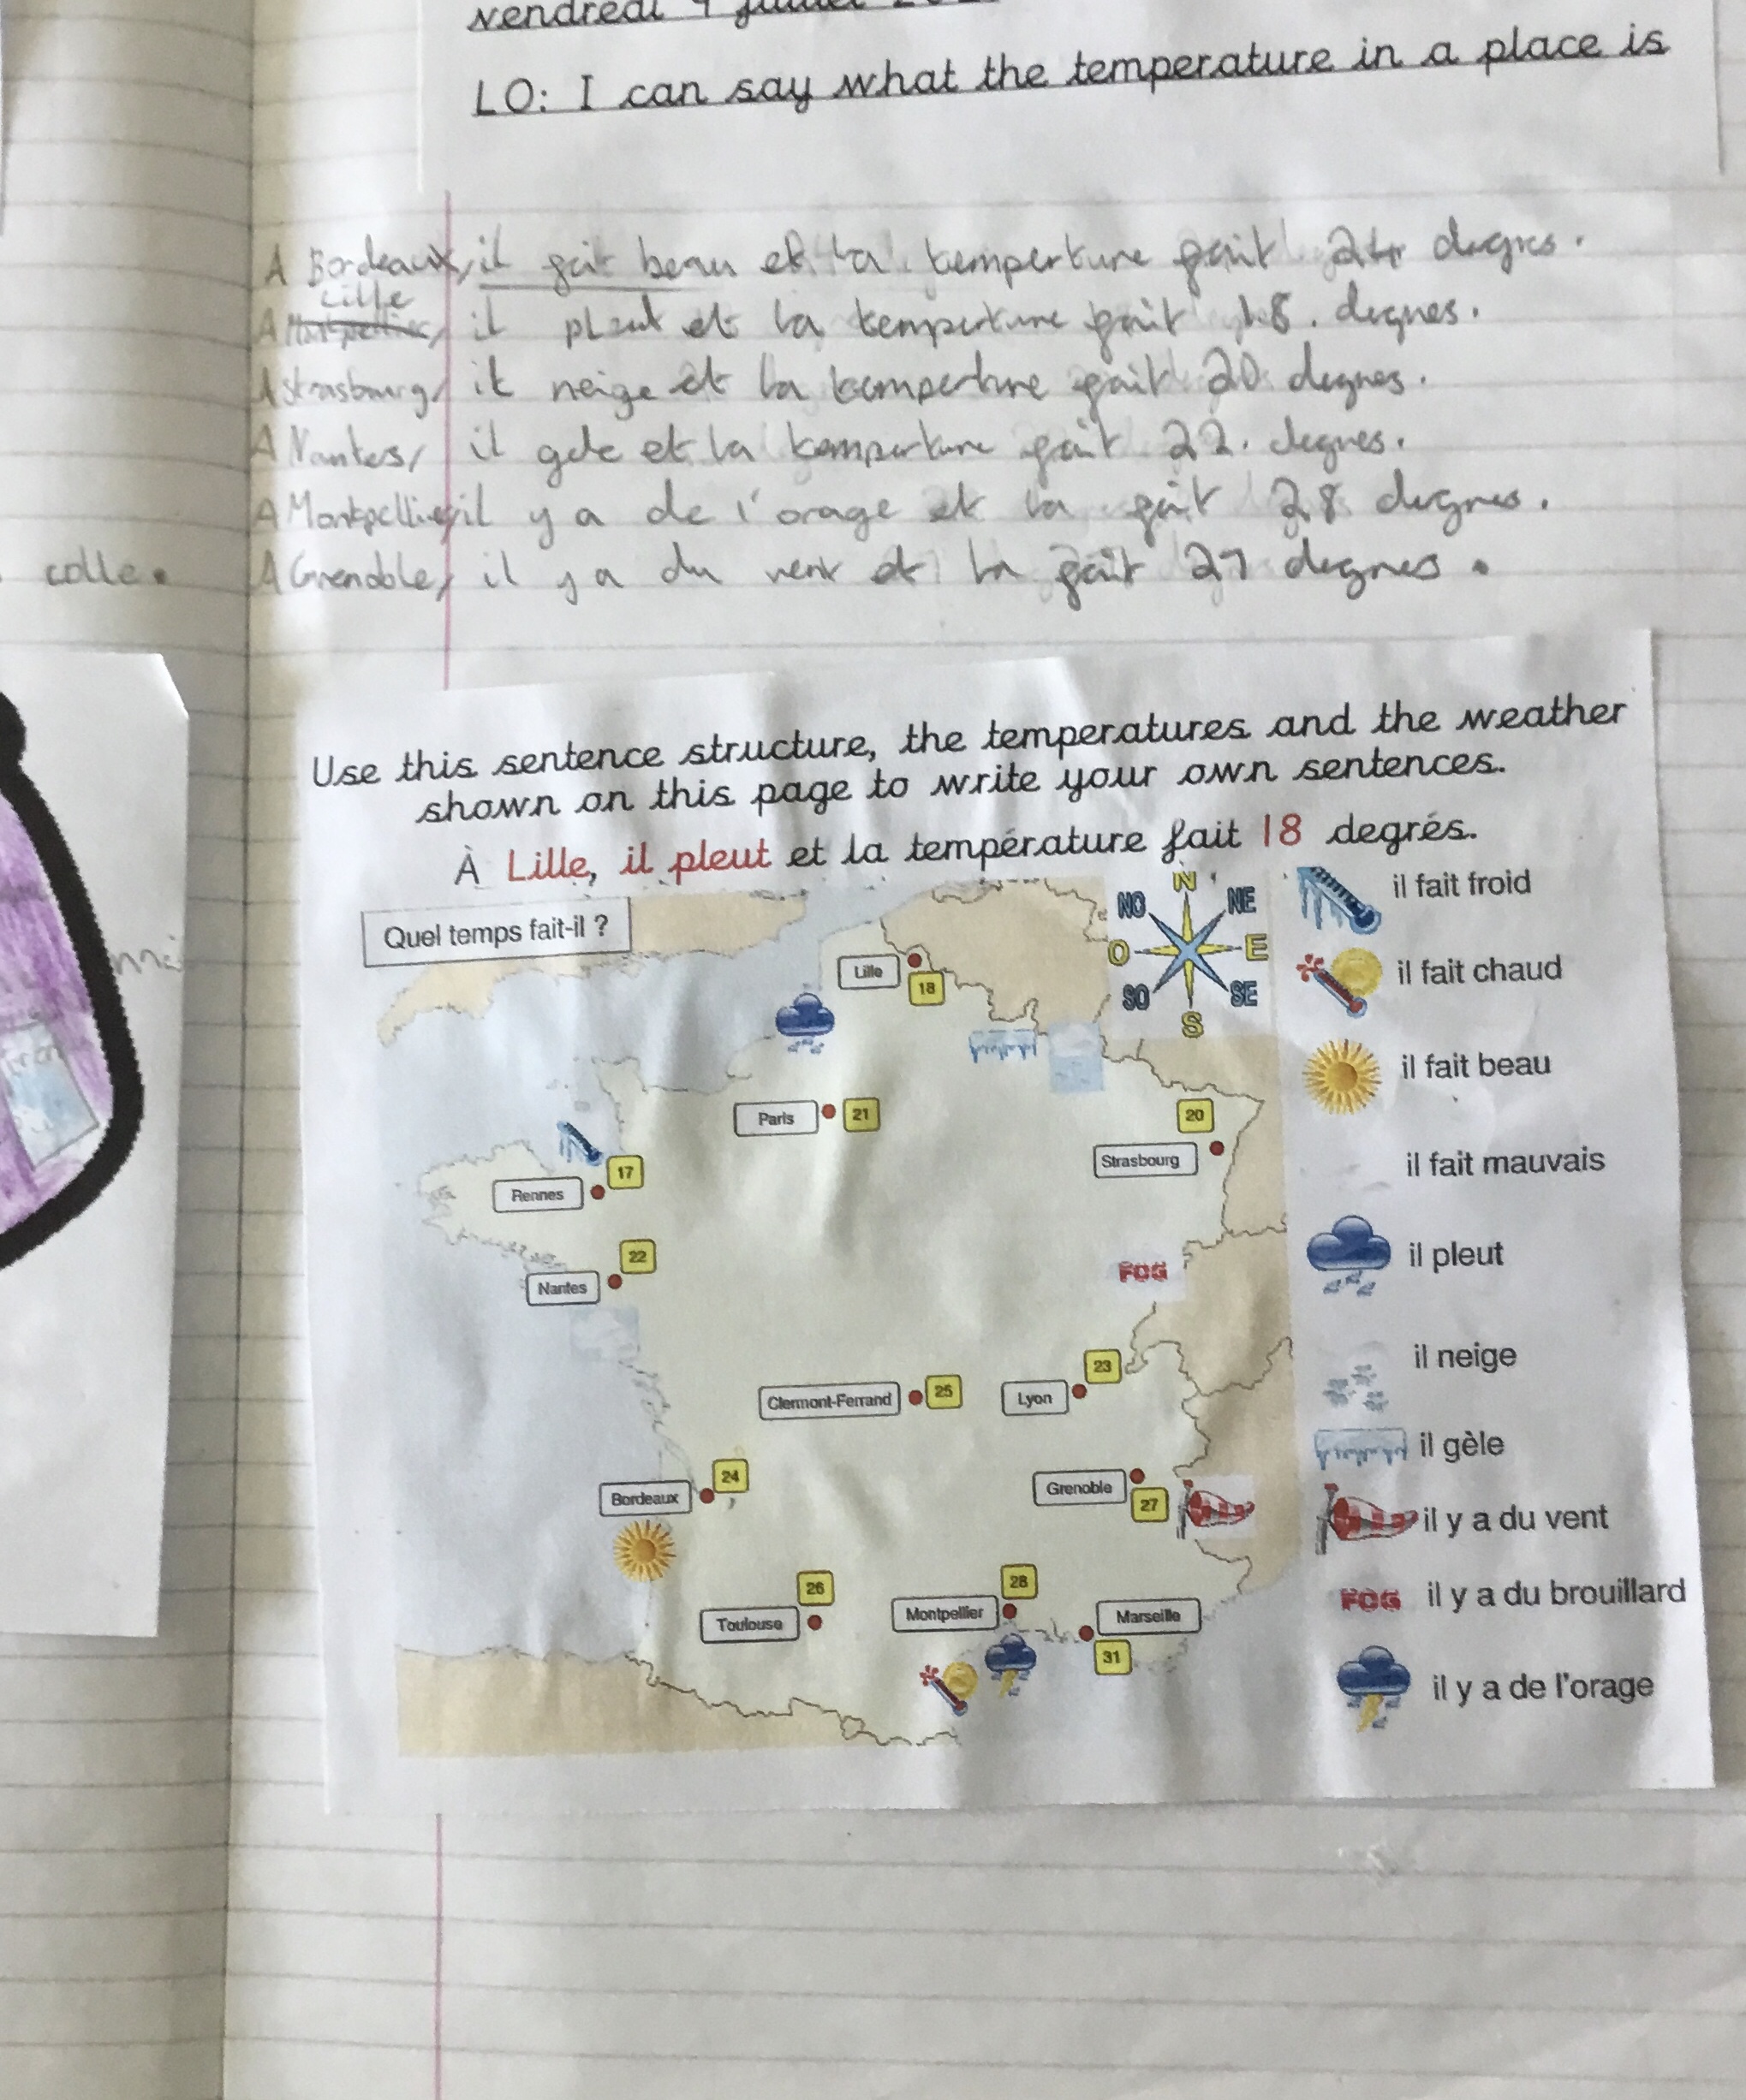 vendredi 9 juillet
LO: I can say what the temperature in a place is
A Bordeaux, il fait beau et la temperture fait 24 degres.
Lille
A Montpellier, il pleut et la temperture fait 18. degres.
A Strasbourg, it neige et la temperture fait 20 degres.
A Nantes, il gele et la temperture fait 22. degres.
A Montpellier, il y a de l'orage et la fait 28 degres.
colle.
A Grenoble, il y a du vent et la fait 27 degres.
Use this sentence structure, the temperatures and the weather
shown on this page to write your own sentences.
À Lille, il pleut et la température fait 18 degrés.
Quel temps fait-il ?
N
NO
NE
O
E
SO
SE
S
Lille
18
Paris
21
20
Strasbourg
17
Rennes
22
Nantes
FOG
23
Clermont-Ferrand
25
Lyon
24
Bordeaux
Grenoble
27
26
28
Toulouse
Montpellier
Marseille
31
il fait froid
il fait chaud
il fait beau
il fait mauvais
il pleut
il neige
il gèle
il y a du vent
FOG il y a du brouillard
il y a de l'orage